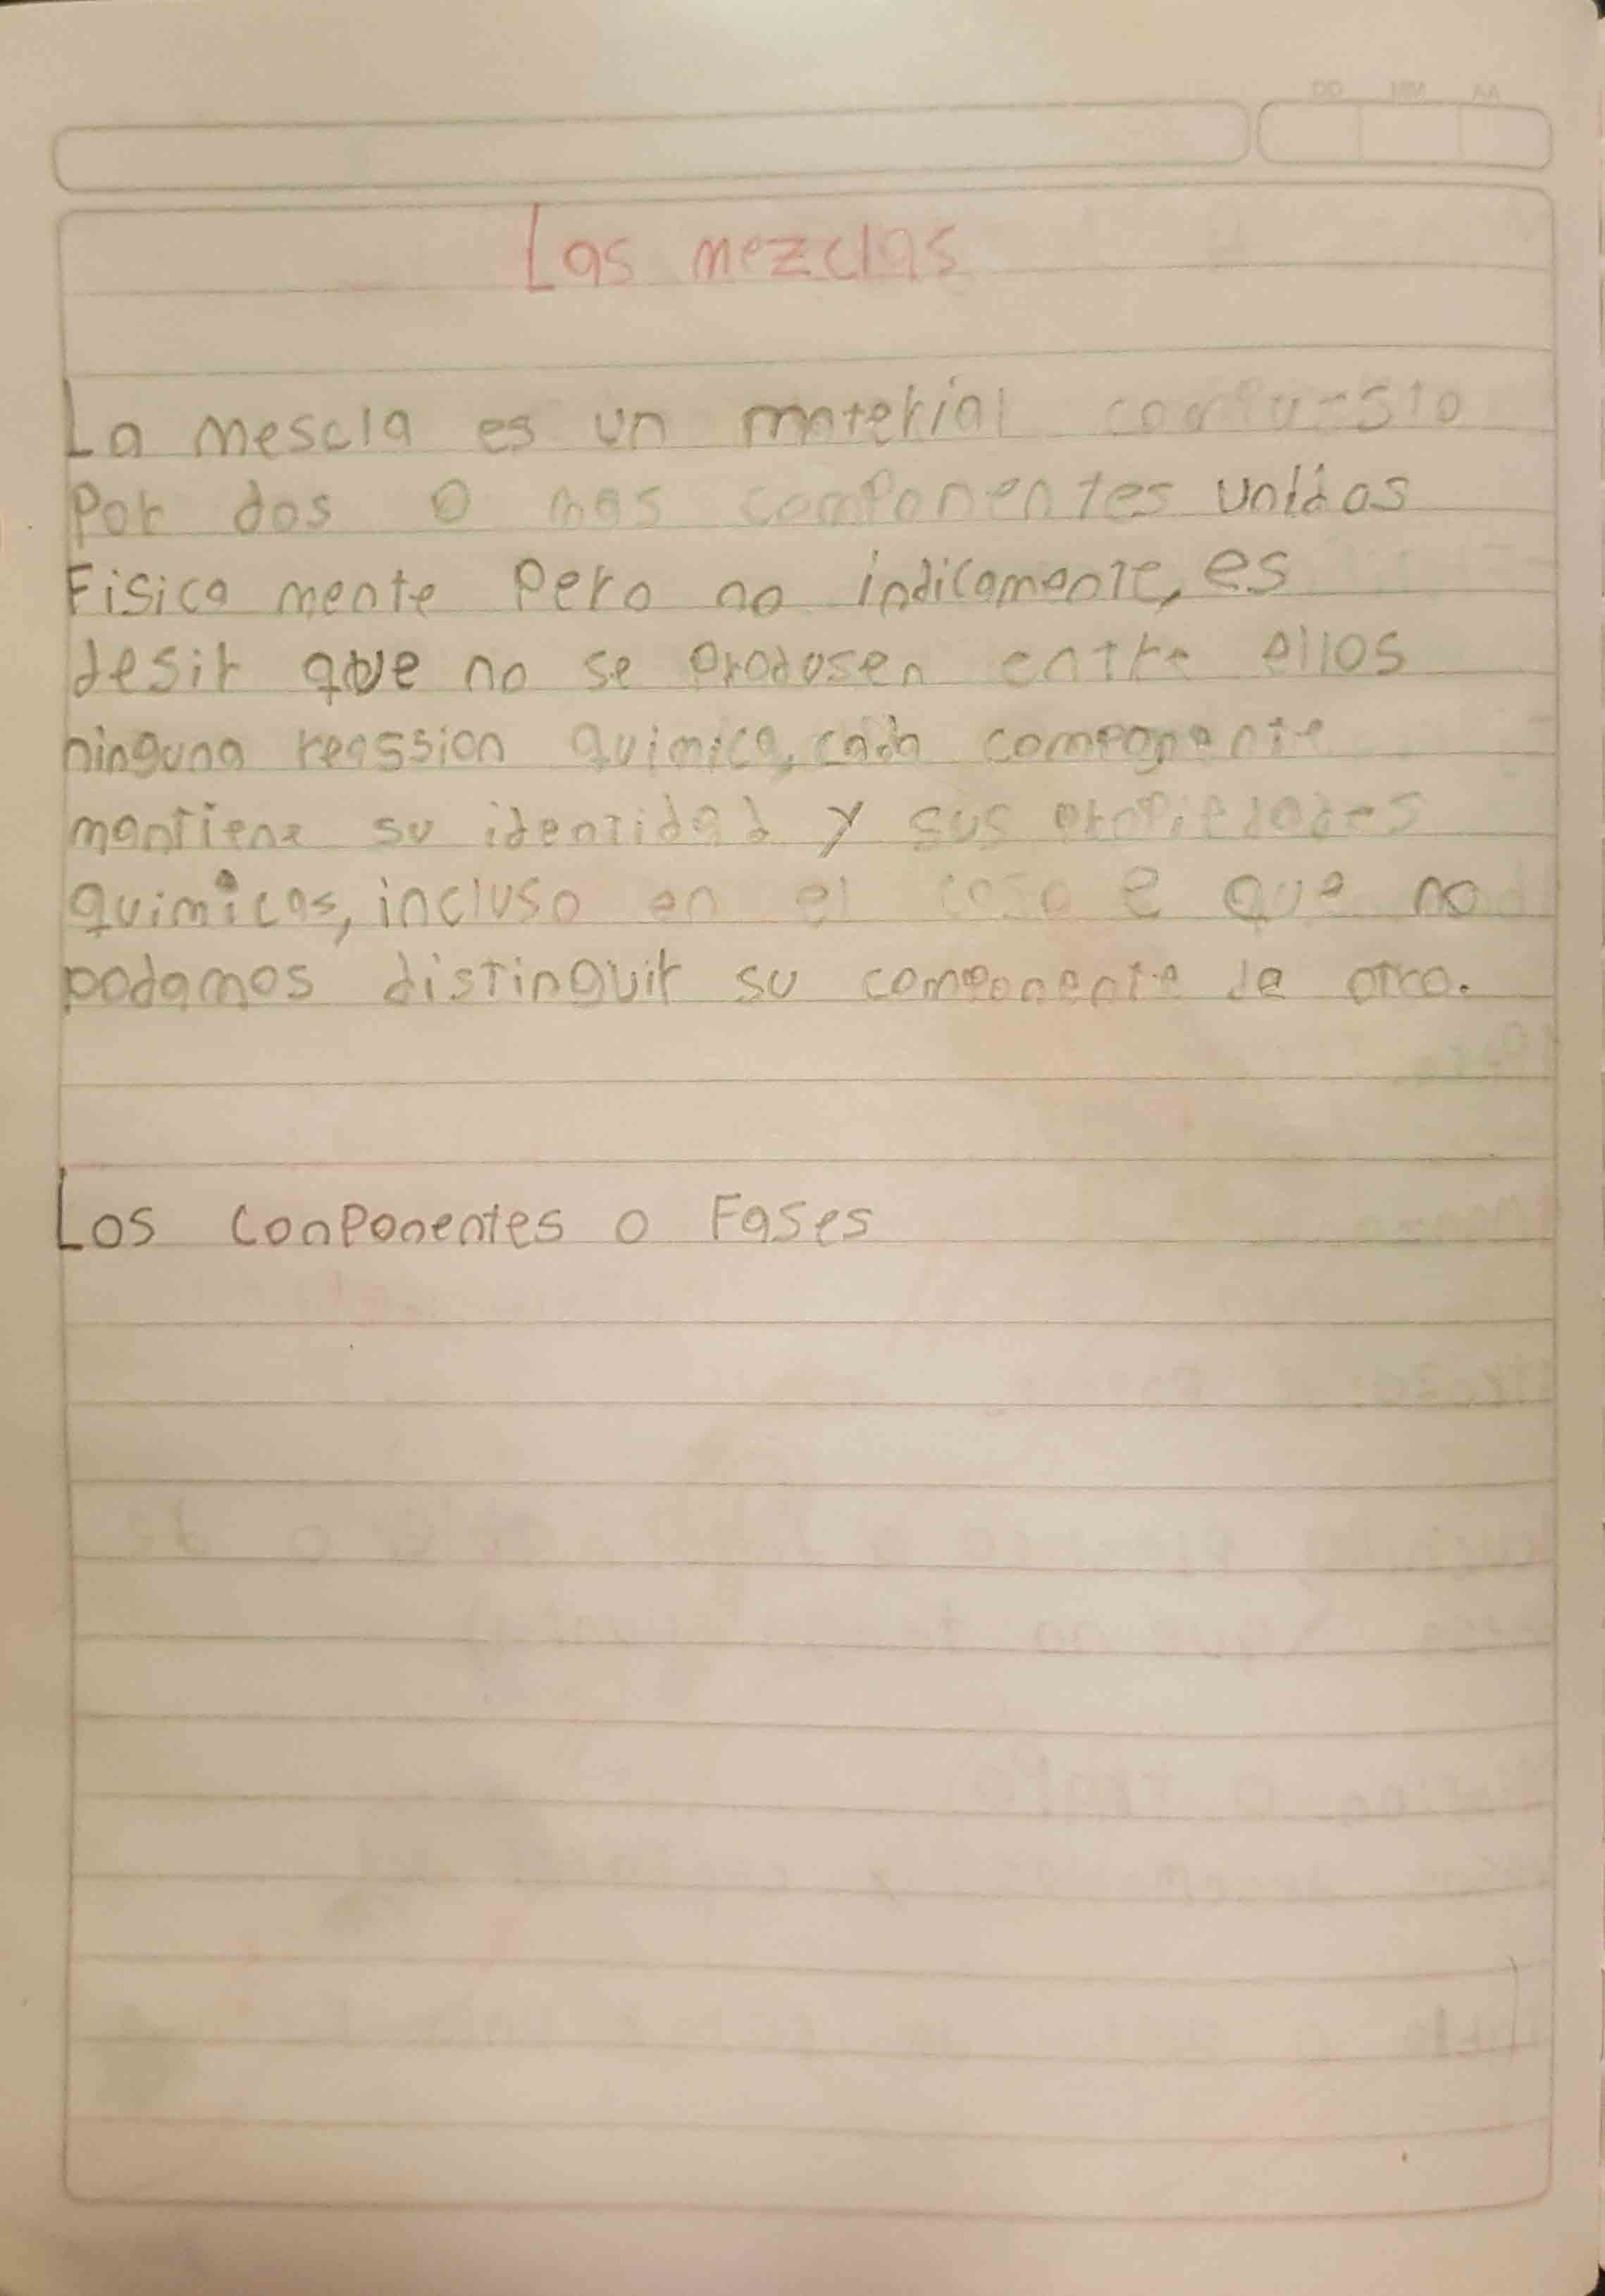 Las mezclas
La mescla es un material compuesto
Por dos o mas componentes unidos
Fisica mente Pero no indicamente, es
desir que no se produsen entre ellos
ninguna reassion quimica, cada componente
mantiene su identidad y sus propiedades
quimicas, incluso en el caso e que no
podamos distinguir su componente de otro.
Los conPonentes o Fases